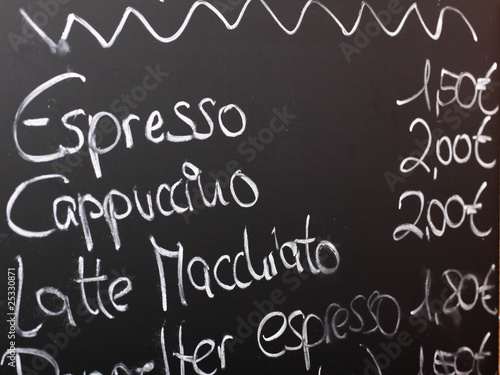 Espresso 1,50€
Cappuccino 2,00€
Latte Macchiato 2,00€
Doppelter espresso 1,80€
Adobe Stock | #25330871